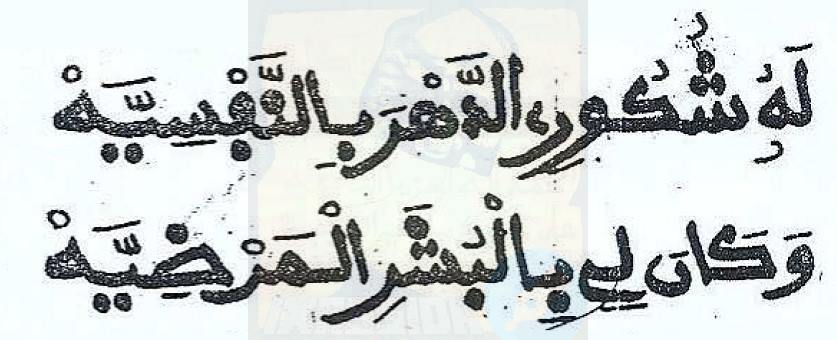 لَهُ شُكُورِي الدَّهْرَ بِالنَّفْسِيَّهْ
وَكَانَ لِي بِالْبُشَرِ الْمَرْضِيَّهْ